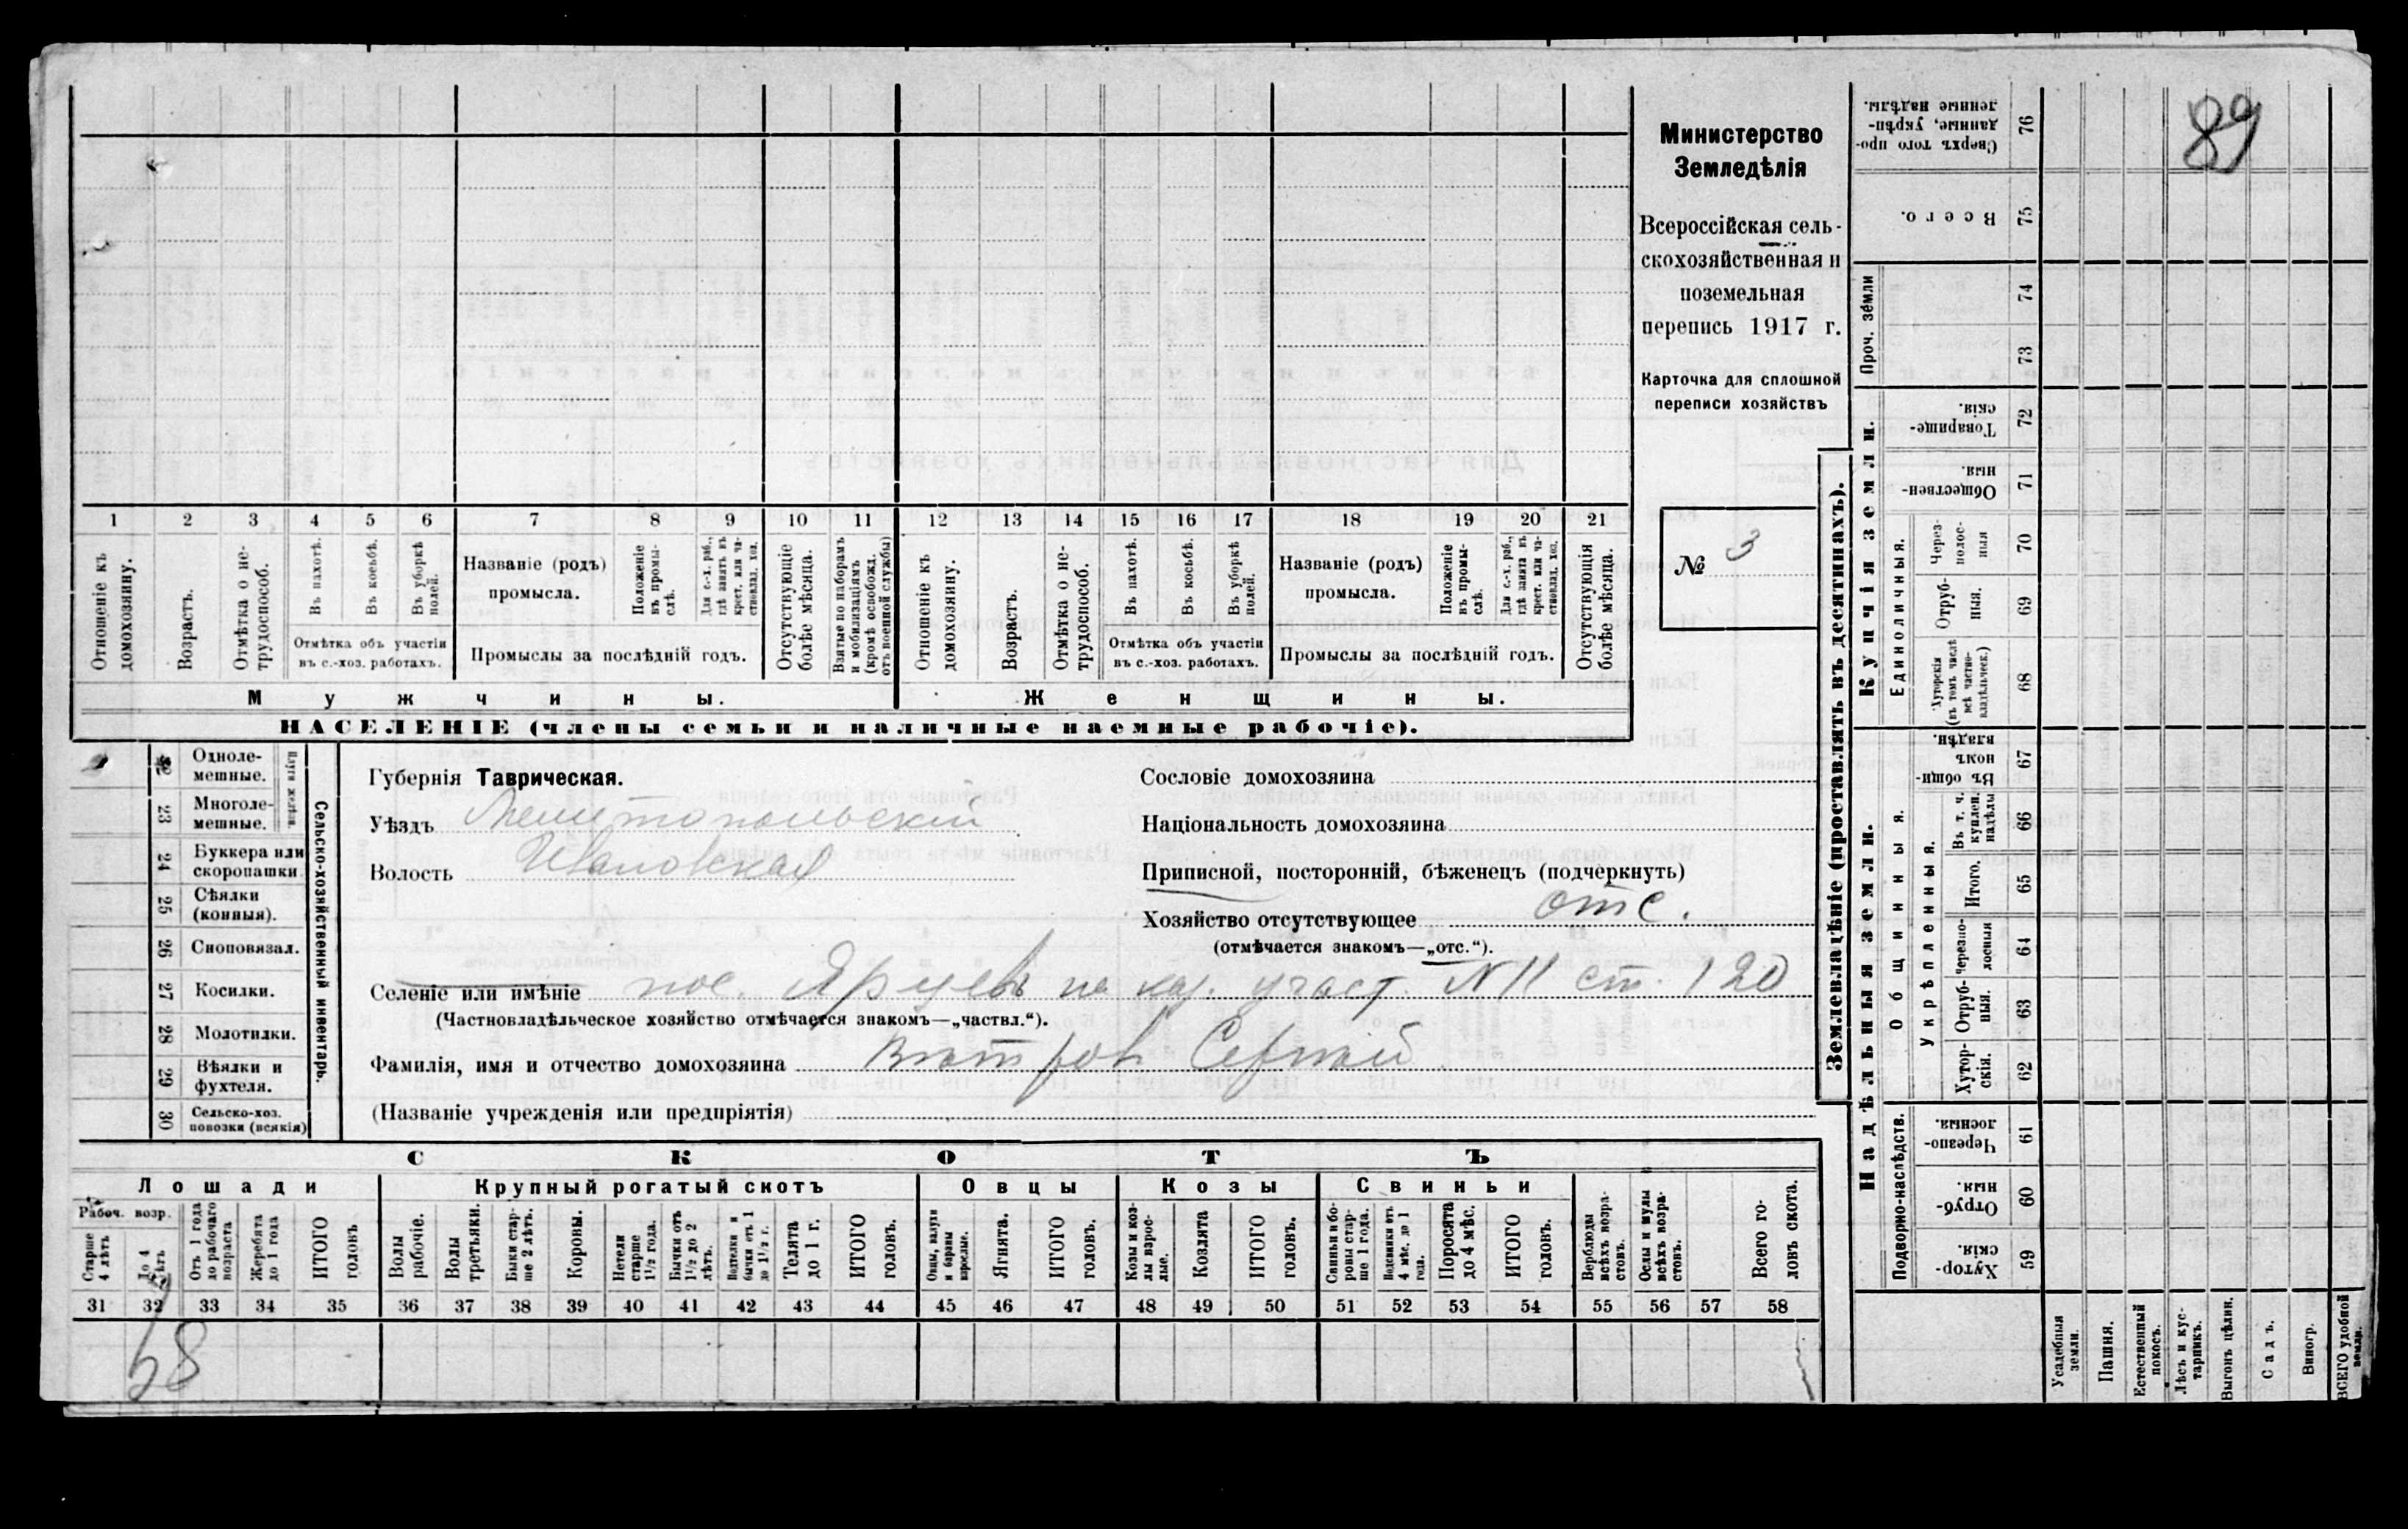 89
Министерство
Земледѣлія
Всероссійская сель-
скохозяйственная и
поземельная
перепись 1917 г.
Карточка для сплошной
переписи хозяйствъ
№ 3
1 2 3 4 5 6 7 8 9 10 11 12 13 14 15 16 17 18 19 20 21
Отношеніе къ домохозяину.
Возрастъ.
Отмѣтка о не-трудоспособ.
Въ пахотѣ.
Въ косьбѣ.
Въ уборкѣ полей.
Отмѣтка объ участіи
въ с.-хоз. работахъ.
Названіе (родъ)
промысла.
Положеніе въ промы-слѣ.
Для с.-х. раб., гдѣ занятъ въ крест. или ча-стновлад. хоз.
Промыслы за послѣдній годъ.
Отсутствующіе болѣе мѣсяца.
Взятые по наборамъ и мобилизаціямъ (кромѣ освобожд. отъ военной службы)
Отношеніе къ домохозяину.
Возрастъ.
Отмѣтка о не-трудоспособ.
Въ пахотѣ.
Въ косьбѣ.
Въ уборкѣ полей.
Отмѣтка объ участіи
въ с.-хоз. работахъ.
Названіе (родъ)
промысла.
Положеніе въ промы-слѣ.
Для с.-х. раб., гдѣ занята въ крест. или ча-стновлад. хоз.
Промыслы за послѣдній годъ.
Отсутствующія болѣе мѣсяца.
Мужчины.
Женщины.
НАСЕЛЕНІЕ (члены семьи и наличные наемные рабочіе).
Одноле-
мешные.
23 Многоле-
мешные.
Плуги желѣзн.
24 Буккера или
скоропашки
25 Сѣялки
(конныя).
26 Сноповязал.
27 Косилки.
28 Молотилки.
29 Вѣялки и
фухтеля.
30 Сельско-хоз.
повозки (всякія)
Сельско-хозяйственный инвентарь.
Губернія Таврическая.
Уѣздъ Мелитопольскій
Волость Ивановская
Сословіе домохозяина
Національность домохозяина
Приписной, посторонній, бѣженецъ (подчеркнуть)
Хозяйство отсутствующее отс.
(отмѣчается знакомъ—„отс.“).
Селеніе или имѣніе пос. на каз. участ. N 11 ст. 120
(Частновладѣльческое хозяйство отмѣчается знакомъ—„частвл.“).
Фамилія, имя и отчество домохозяина Вѣтровъ Сергѣй
(Названіе учрежденія или предпріятія)
СКОТЪ
Лошади
Крупный рогатый скотъ
Овцы
Козы
Свиньи
Рабоч. возр.
Старше 4 лѣтъ
До 4 лѣтъ
Отъ 1 года до рабочаго возраста
Жеребята до 1 года
ИТОГО головъ
Волы рабочіе.
Волы третьяки.
Быки стар-ше 2 лѣтъ.
Коровы.
Нетели старше 1½ года.
Бычки отъ 1½ до 2 лѣтъ.
Подтелки и бычки отъ 1 до 1½ г.
Телята до 1 г.
ИТОГО головъ.
Овцы, валухи и бараны взрослые.
Ягнята.
ИТОГО головъ.
Козы и коз-лы взрос-лые.
Козлята
ИТОГО головъ.
Свиньи и бо-ровы стар-ше 1 года.
Подсвинки отъ 4 мѣс. до 1 года.
Поросята до 4 мѣс.
ИТОГО головъ.
Верблюды всѣхъ возра-стовъ.
Ослы и мулы всѣхъ возра-стовъ.
Всего го-ловъ скота.
31 32 33 34 35 36 37 38 39 40 41 42 43 44 45 46 47 48 49 50 51 52 53 54 55 56 57 58
58
Землевладѣніе (проставлять въ десятинахъ).
Купчія земли.
Надѣльныя земли.
Сверхъ того про-данные, укрѣп-ленные надѣлы. 76
Всего. 75
Проч. земли
74
73
Товарище-скія. 72
Обществен-ныя. 71
Единоличныя.
Через-полос-ныя 70
Отруб-ныя. 69
Хуторскія (въ томъ числѣ всѣ частно-владѣльческ.) 68
Общинныя.
Въ общи-номъ владѣн. 67
Укрѣпленныя.
Въ т. ч. куплен. надѣлы 66
Итого. 65
Черезпо-лосныя 64
Отруб-ныя. 63
Хутор-скія. 62
Подворно-наслѣдств.
Черезпо-лосныя. 61
Отруб-ныя. 60
Хутор-скія. 59
Усадебныя земли.
Пашня.
Естественный покосъ.
Лѣсъ и кус-тарникъ.
Выгонъ цѣлин.
Садъ.
Виногр.
ВСЕГО удобной земли.